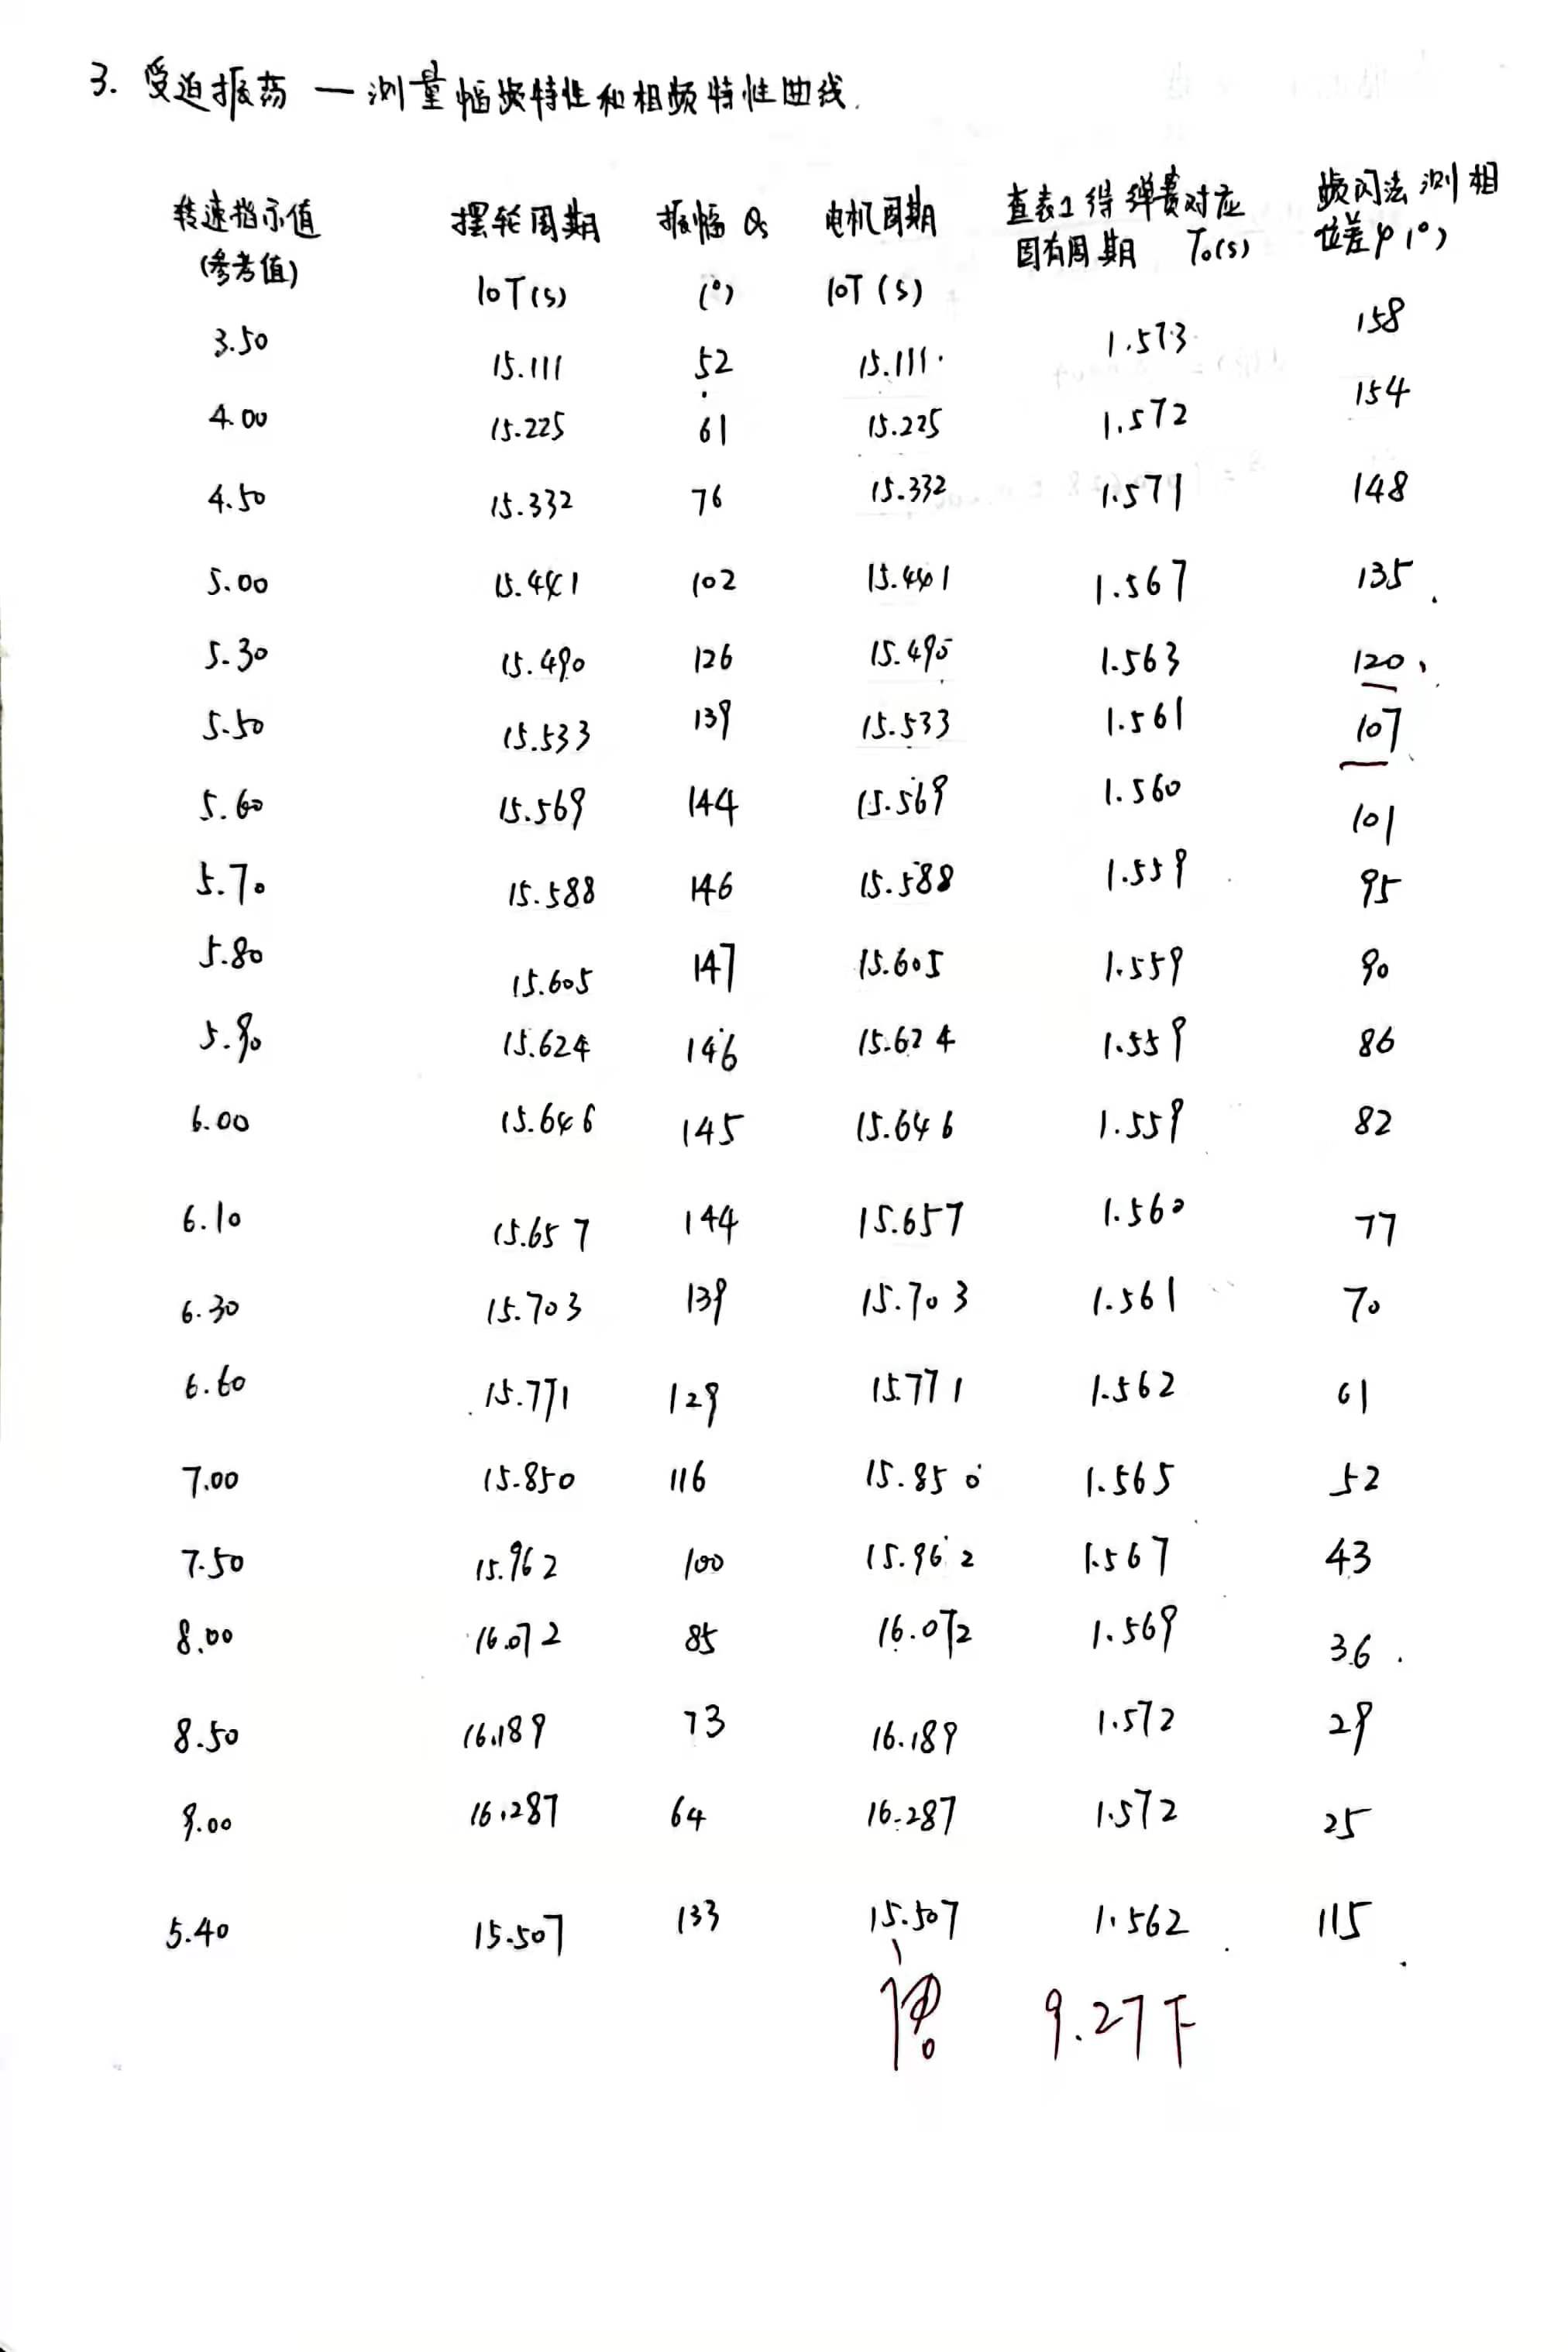 3. 受迫振荡 — 测量幅频特性和相频特性曲线.
转速指示值 (参考值) 摆轮周期 10T(s) 振幅 θs (°) 电机周期 10T(s) 查表1得弹簧对应固有周期 T₀(s) 频闪法测相位差φ(°)
3.50 15.111 52 15.111 1.573 158
4.00 15.225 61 15.225 1.572 154
4.50 15.332 76 15.332 1.571 148
5.00 15.441 102 15.441 1.567 135
5.30 15.490 126 15.490 1.563 120
5.50 15.533 139 15.533 1.561 107
5.60 15.569 144 15.569 1.560 101
5.70 15.588 146 15.588 1.559 95
5.80 15.605 147 15.605 1.559 90
5.90 15.624 146 15.624 1.559 86
6.00 15.646 145 15.646 1.559 82
6.10 15.657 144 15.657 1.560 77
6.30 15.703 139 15.703 1.561 70
6.60 15.771 129 15.771 1.562 61
7.00 15.850 116 15.850 1.565 52
7.50 15.962 100 15.962 1.567 43
8.00 16.072 85 16.072 1.569 36
8.50 16.189 73 16.189 1.572 29
9.00 16.287 64 16.287 1.572 25
5.40 15.507 133 15.507 1.562 115
9.27下